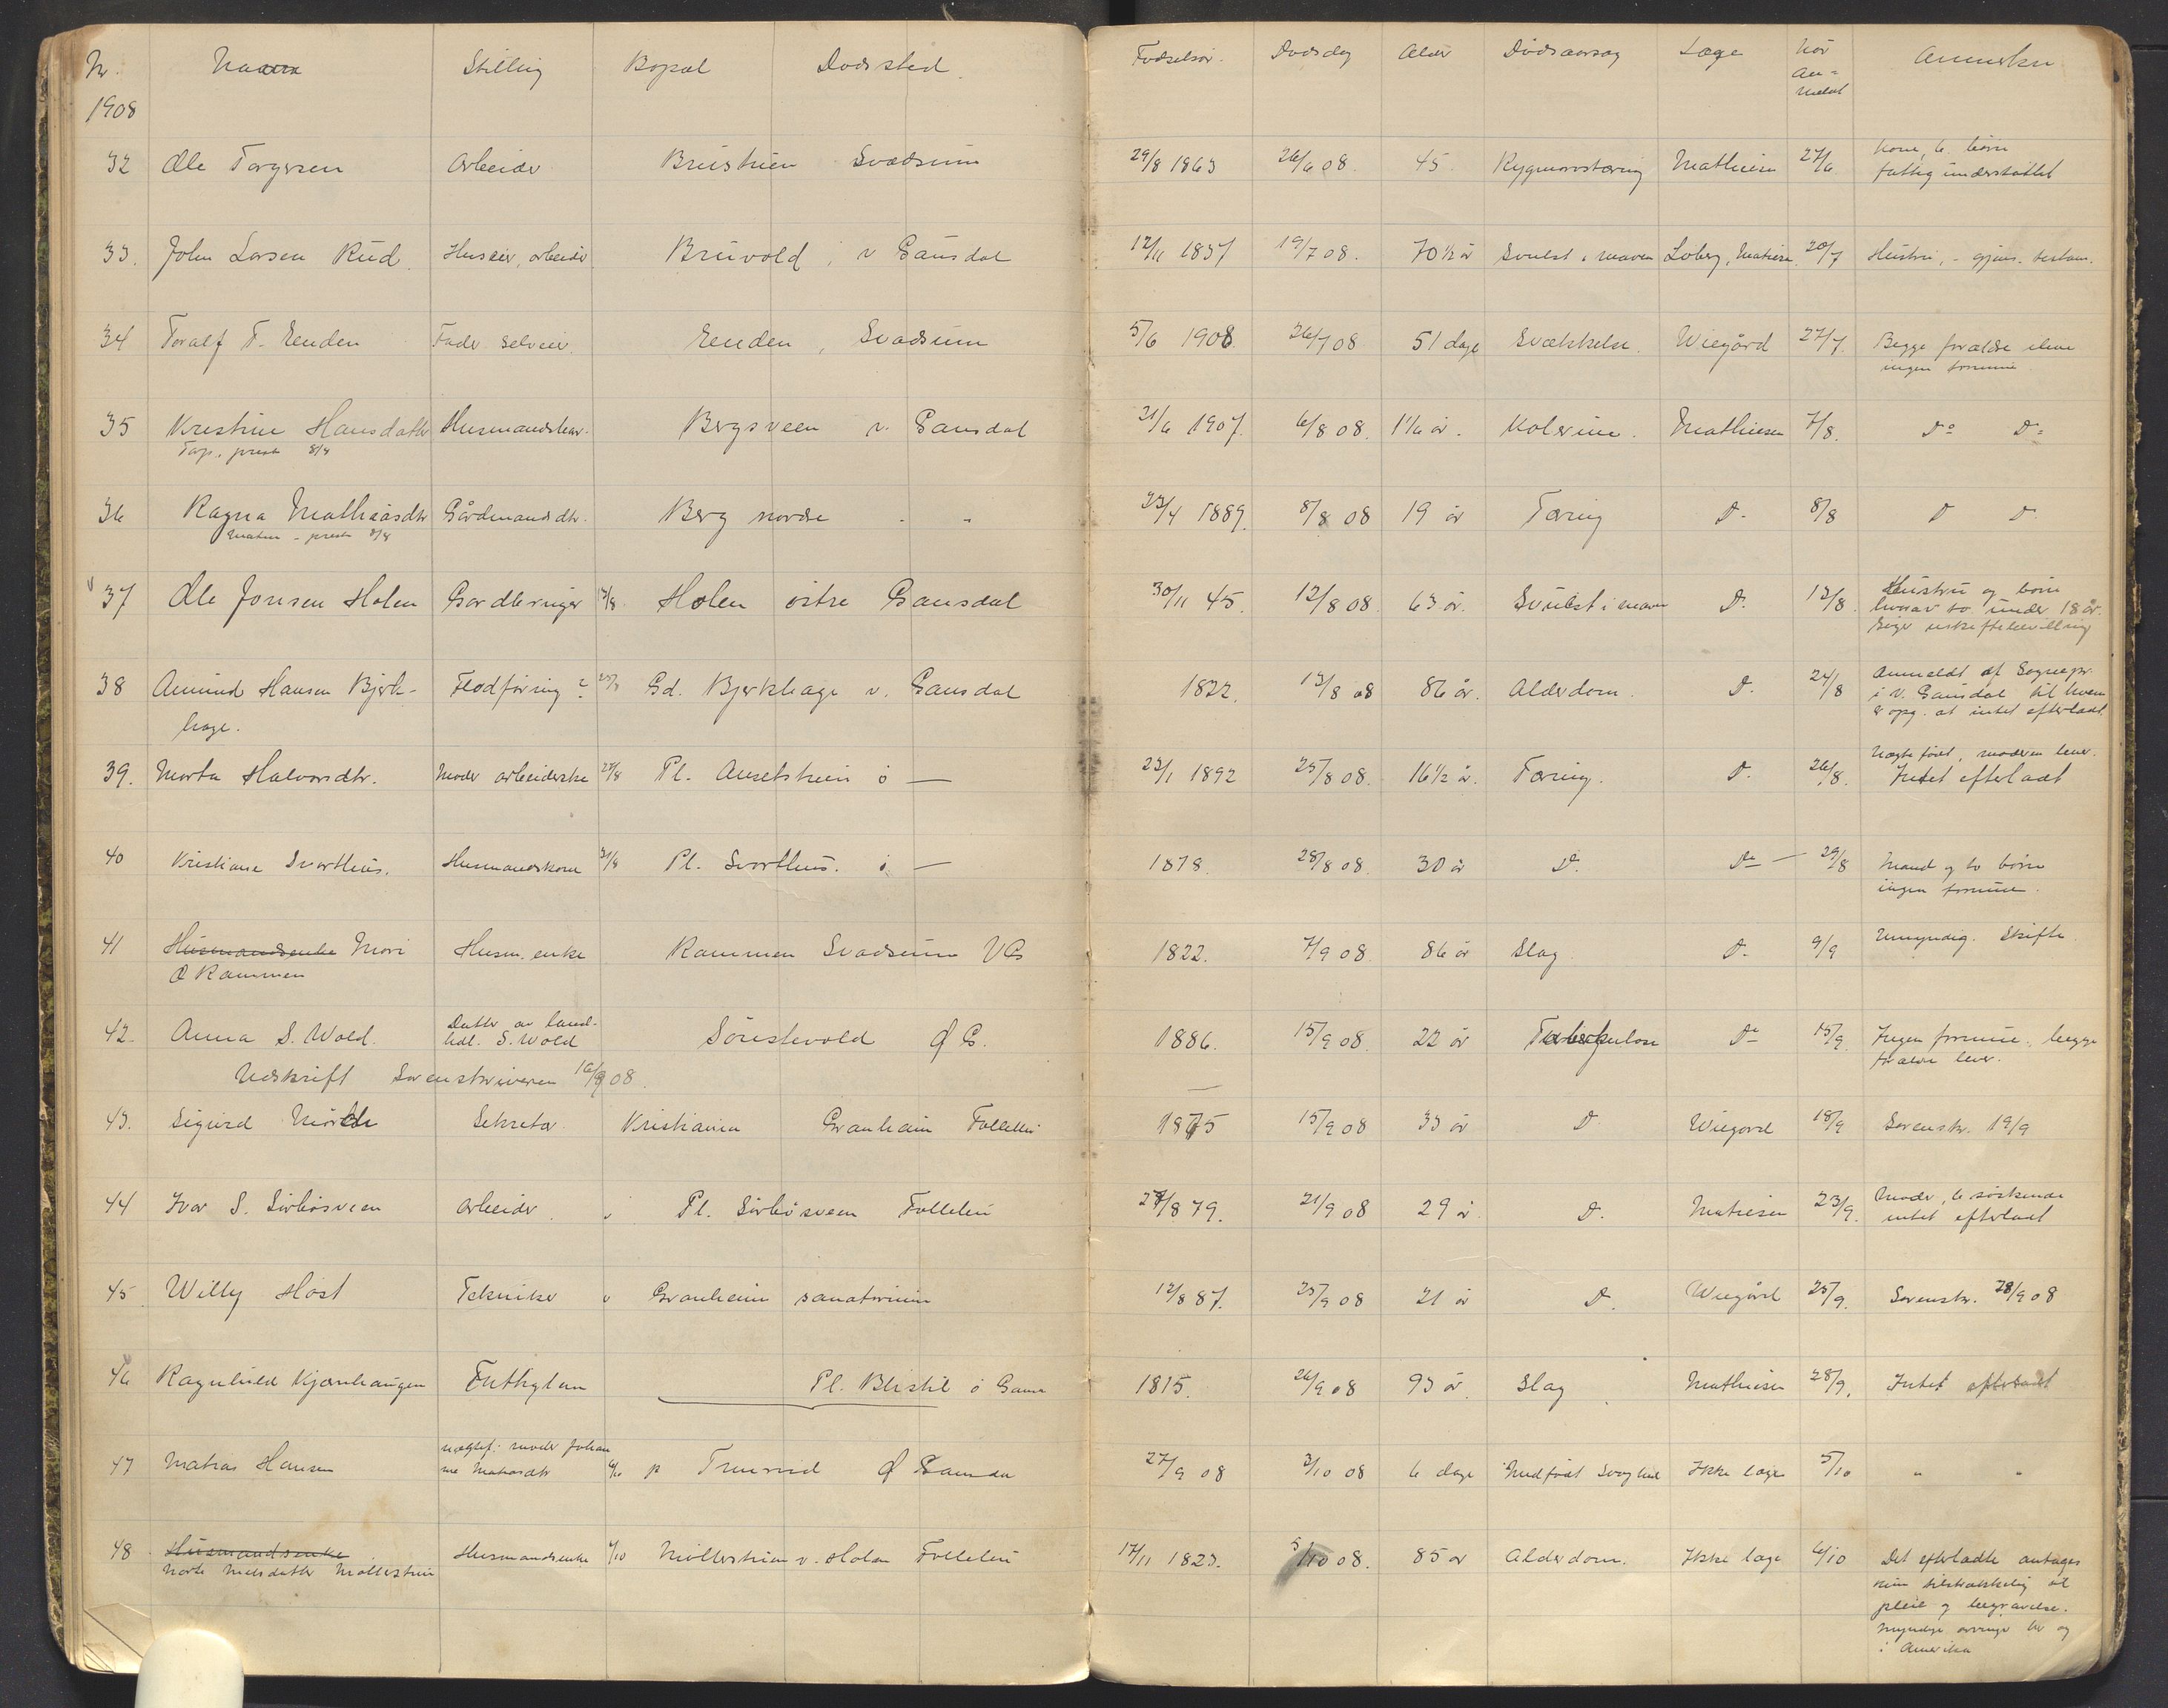 Nr. Navn Stilling Bopæl Dødssted. Fødselsår. Dødsdag Alder Dødsaarsag Læge Når An=meldt Anmerkn
1908
32 Ole Torgersen Arbeider Svadsum 29/8 1863 26/6 08. 45. Rygmarvstæring Mathiesen 27/6 Kone, 6 børn
fattigunderstøttet
33. John Larsen Rud Huseier, arbeider Bruvold, v Gausdal 12/11 1837 19/7 08. 70 1/2 år Svulst i maven Loberg, Matiesen 20/7 Hustru, - gjens. testam.
34 Toralf T. Eenden Fader selveier. Eenden, Svadsum 5/6 1908. 26/7 08 51 dage Svækkelse. Wiegård 27/7. Begge forældre ilive
ingen formue
35 Kristine Hansdatter Husmandsbar. Bergsveen v. Gausdal 21/6 1907. 6/8 08. 1 1/6 år. Kolerine. Mathiesen 7/8. Do Do
prest 8/8
36 Ragna Mathiasdtr Gårdmandsdtr. Berg nordre - " 23/4 1889. 8/8 08 19 år Tæring D. 8/8 D D
prest 8/8
37 Ole Jonsen Holen Gardbruger 13/8. Holen østre Gausdal 30/11 45. 12/8 08. 63 år. Svulst i maven D. 13/8. Hustru og børn
hvorav to under 18 år.
Søger uskiftebevilling
38 Amund Hansen Bjerk- Flodføring ? Gd. Bjerkhage v. Gausdal 1822. 13/8 08 86 år. Alderdom. D. 24/8 Anmeldt af Sognepr.
hage. i v. Gausdal til hvem
er opg. at intet efterladt.
39. Marta Halvorsdtr. Moder arbeiderske 27/8 Pl. ø — 23/1 1892 25/8 08. 16 1/2 år. Tæring. D. 26/8. Uægte født, moderen lever.
Intet efterladt
40 Kristiane Svarthus. Husmandskone 31/8 Pl. Svarthus. ø — 1878. 28/8 08. 30 år D. Do — 29/8 Mand og to børn
ingen formue.
41 Husmandsenke Mari Husm. enke Rammen Svadsum VG 1822. 7/9 08. 86 år Slag D. 9/9 Umyndig. Skifte
O Rammen
42. Anna S. Wold. Datter av land-
hdl. S. Wold Sørstevold Ø G. 1886. 15/9 08. 22 år Tuberkulose Do 15/9. Ingen formue. begge
forældre lever.
Udskrift Sorenskriveren 16/9 08.
43. Sigurd Sekretær Kristiania Granheim Follebu 1875 15/9 08 33 år D. Wiegård 18/9 Sorenskr. 19/9
44 Ivar S. Sørbøsveen arbeider. " Pl. Sørbøsveen Follebu 27/8 79. 21/9 08 29 år D. Matiesen 23/9. Moder, 6 søskende
intet efterladt
45 Willy Høst Tekniker " Granheim sanatorium 12/8 87. 25/9 08 21 år D. Wiegård 25/9. Sorenskr. 28/9 08
46 Ragnhild Kjærnhaugen Fattiglem Pl. ø Gausd 1815. 26/9 08 93 år Slag Mathiesen 28/9. Intet efterladt
47 Matias Hansen uægtef. moder Johan
ne Matiasdtr 6/10 p Ø Gausda 27/9 08 3/10 08 6 dage Medfødt svaghed Ikke læge 5/10 " "
48 Husmandsenke Husmandsenke Møllerstuen v. Holen Follebu 17/11 1823. 5/10 08. 85 år Alderdom. Ikke læge 6/10 Det efterladte antages
Marte Nilsdatter Møllerstuen kun tilstrækkelig til
pleie og begravelse.
Myndige arvinger her og
i Amerika